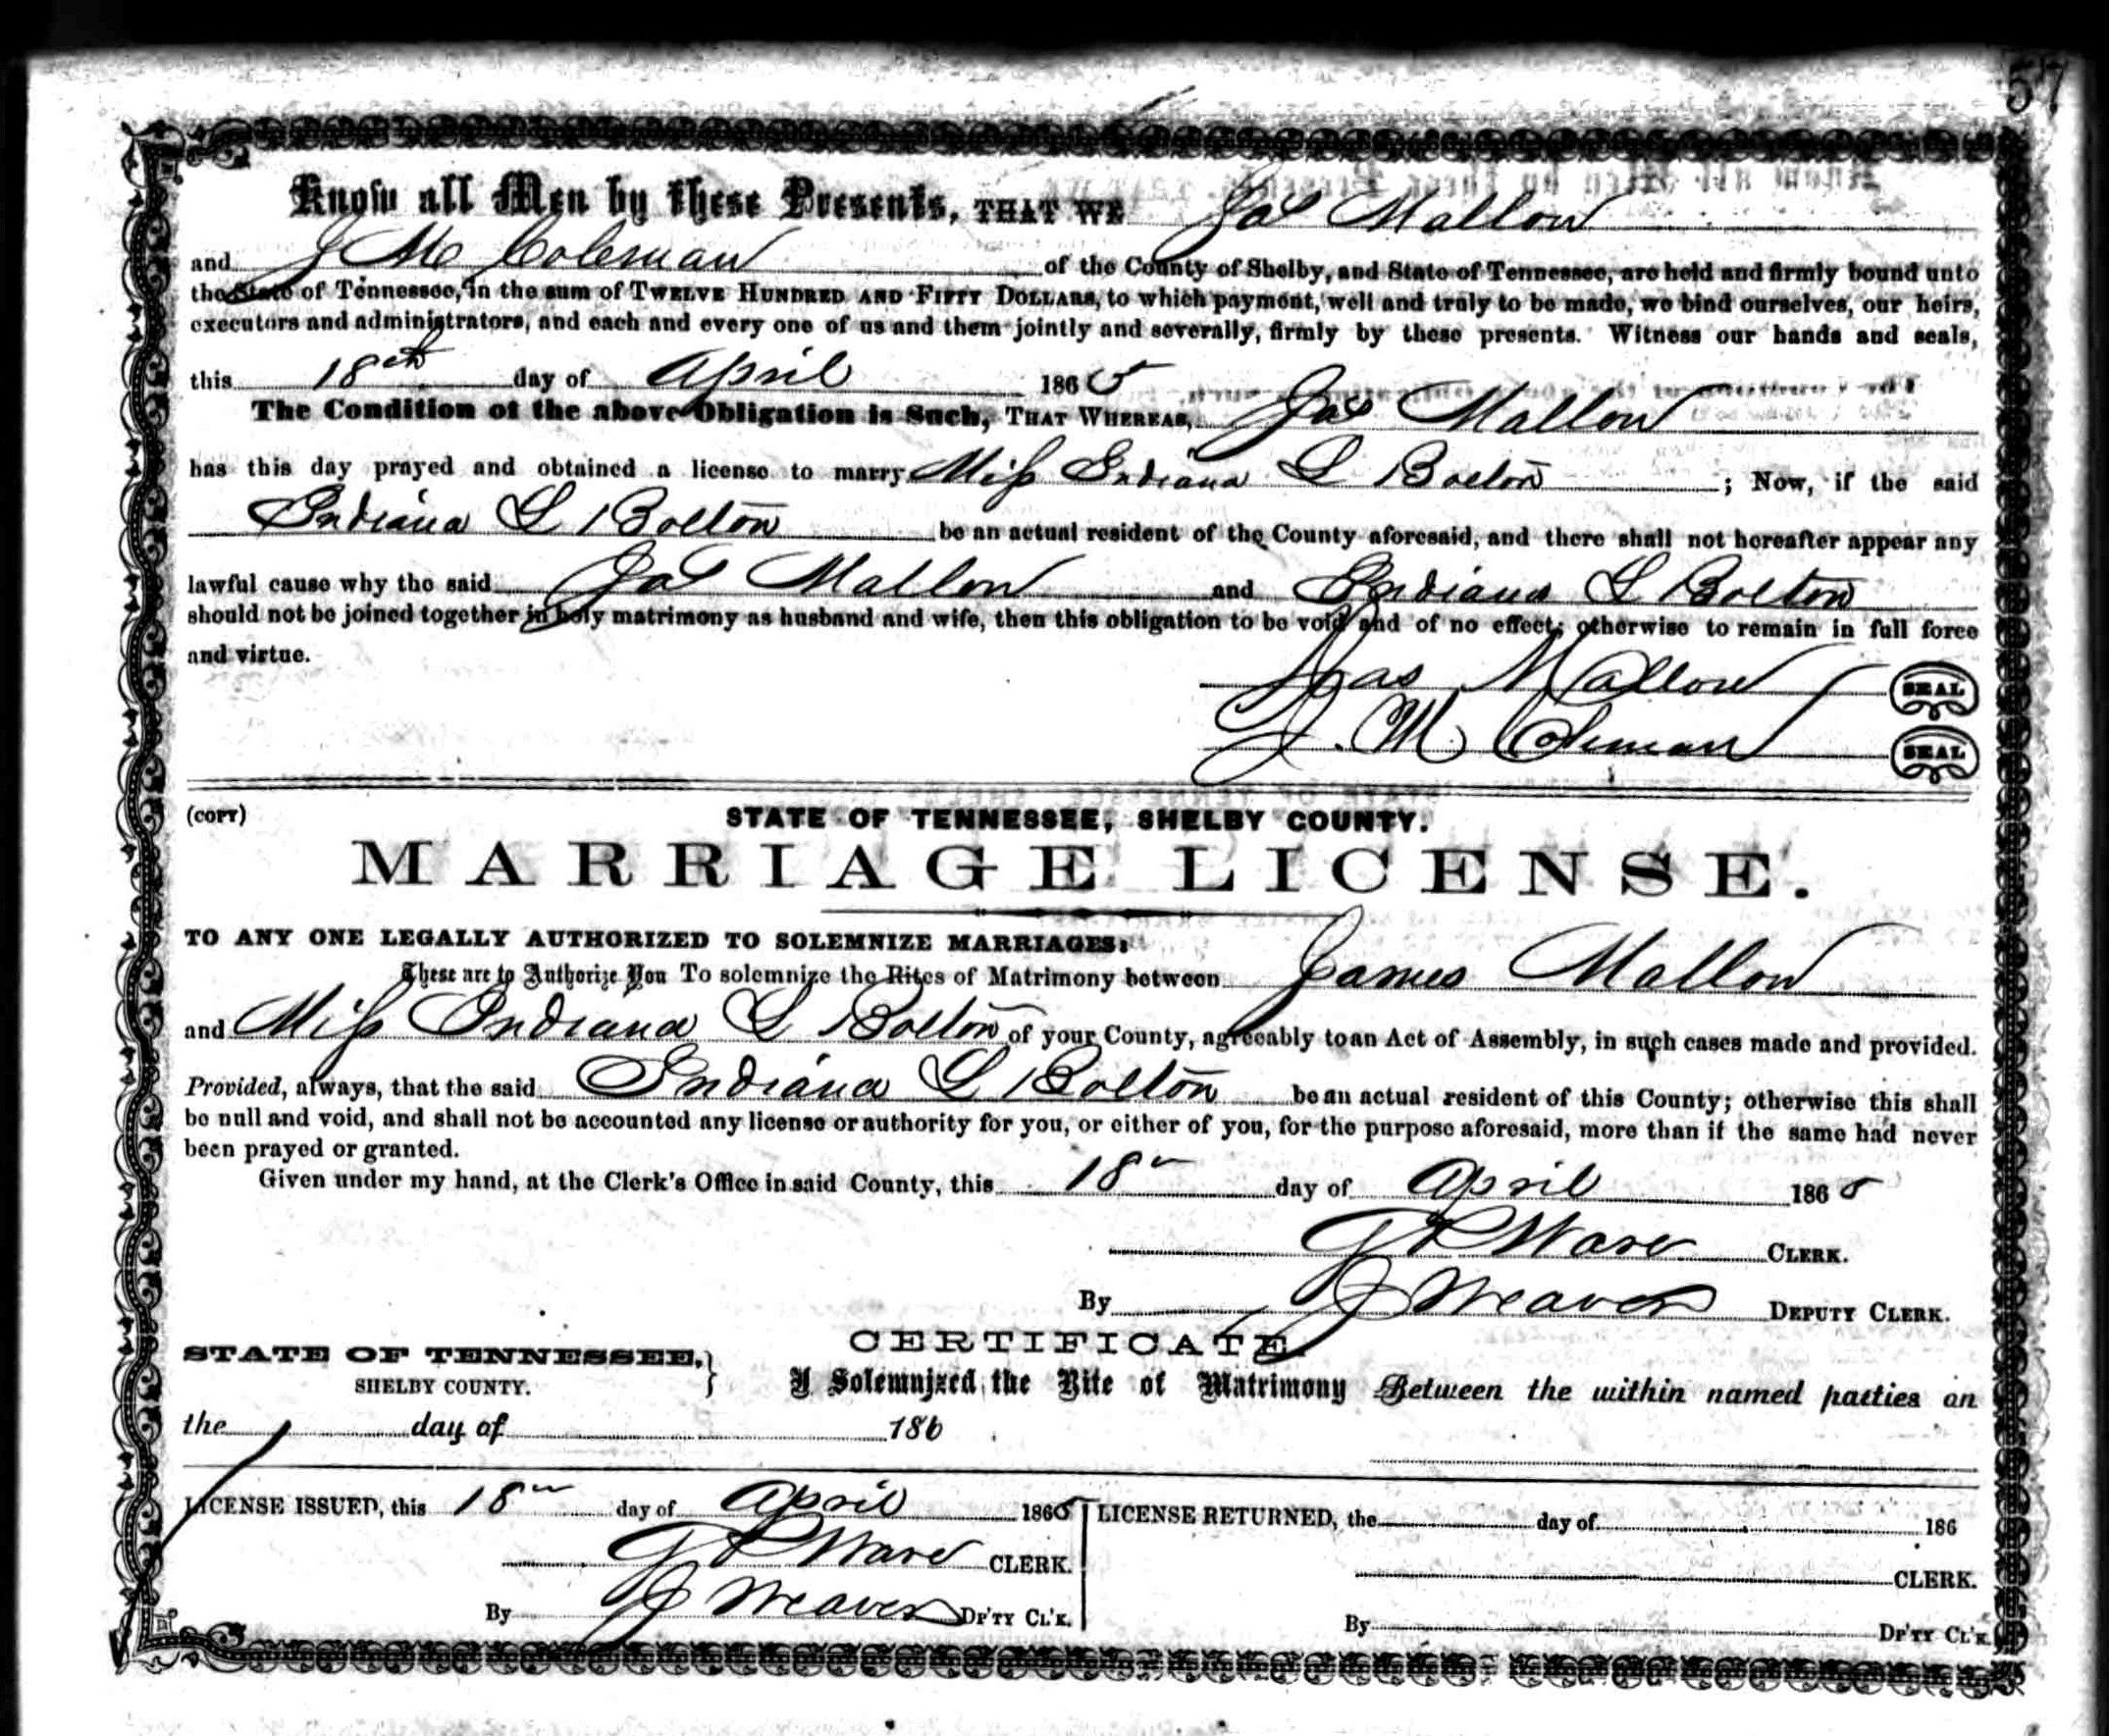 57
Know all Men by these Presents, THAT WE Jas Mallow
and J M Coleman of the County of Shelby, and State of Tennessee, are held and firmly bound unto
the State of Tennessee, in the sum of TWELVE HUNDRED AND FIFTY DOLLARS, to which payment, well and truly to be made, we bind ourselves, our heirs,
executors and administrators, and each and every one of us and them jointly and severally, firmly by these presents. Witness our hands and seals,
this 18th day of April 1865
The Condition of the above Obligation is Such, THAT WHEREAS, Jas Mallow
has this day prayed and obtained a license to marry Miss Indiana L Bolton ; Now, if the said
Indiana L Bolton be an actual resident of the County aforesaid, and there shall not hereafter appear any
lawful cause why the said Jas Mallow and Indiana L Bolton
should not be joined together in holy matrimony as husband and wife, then this obligation to be void and of no effect; otherwise to remain in full force
and virtue.
Jas Mallow SEAL
J. M Coleman SEAL
(COPY) STATE OF TENNESSEE, SHELBY COUNTY.
MARRIAGE LICENSE.
TO ANY ONE LEGALLY AUTHORIZED TO SOLEMNIZE MARRIAGES:
These are to Authorize You To solemnize the Rites of Matrimony between James Mallow
and Miss Indiana L Bolton of your County, agreeably to an Act of Assembly, in such cases made and provided.
Provided, always, that the said Indiana L Bolton be an actual resident of this County; otherwise this shall
be null and void, and shall not be accounted any license or authority for you, or either of you, for the purpose aforesaid, more than if the same had never
been prayed or granted.
Given under my hand, at the Clerk's Office in said County, this 18 day of April 1865
Ware CLERK.
By J Weaver DEPUTY CLERK.
CERTIFICATE.
STATE OF TENNESSEE, }
SHELBY COUNTY.
I Solemnized the Rite of Matrimony Between the within named parties on
the day of 186
LICENSE ISSUED, this 18 day of April 1865
Ware CLERK.
By J Weaver DP'TY CL'K.
LICENSE RETURNED, the day of 186
CLERK.
By DP'TY CL'K.